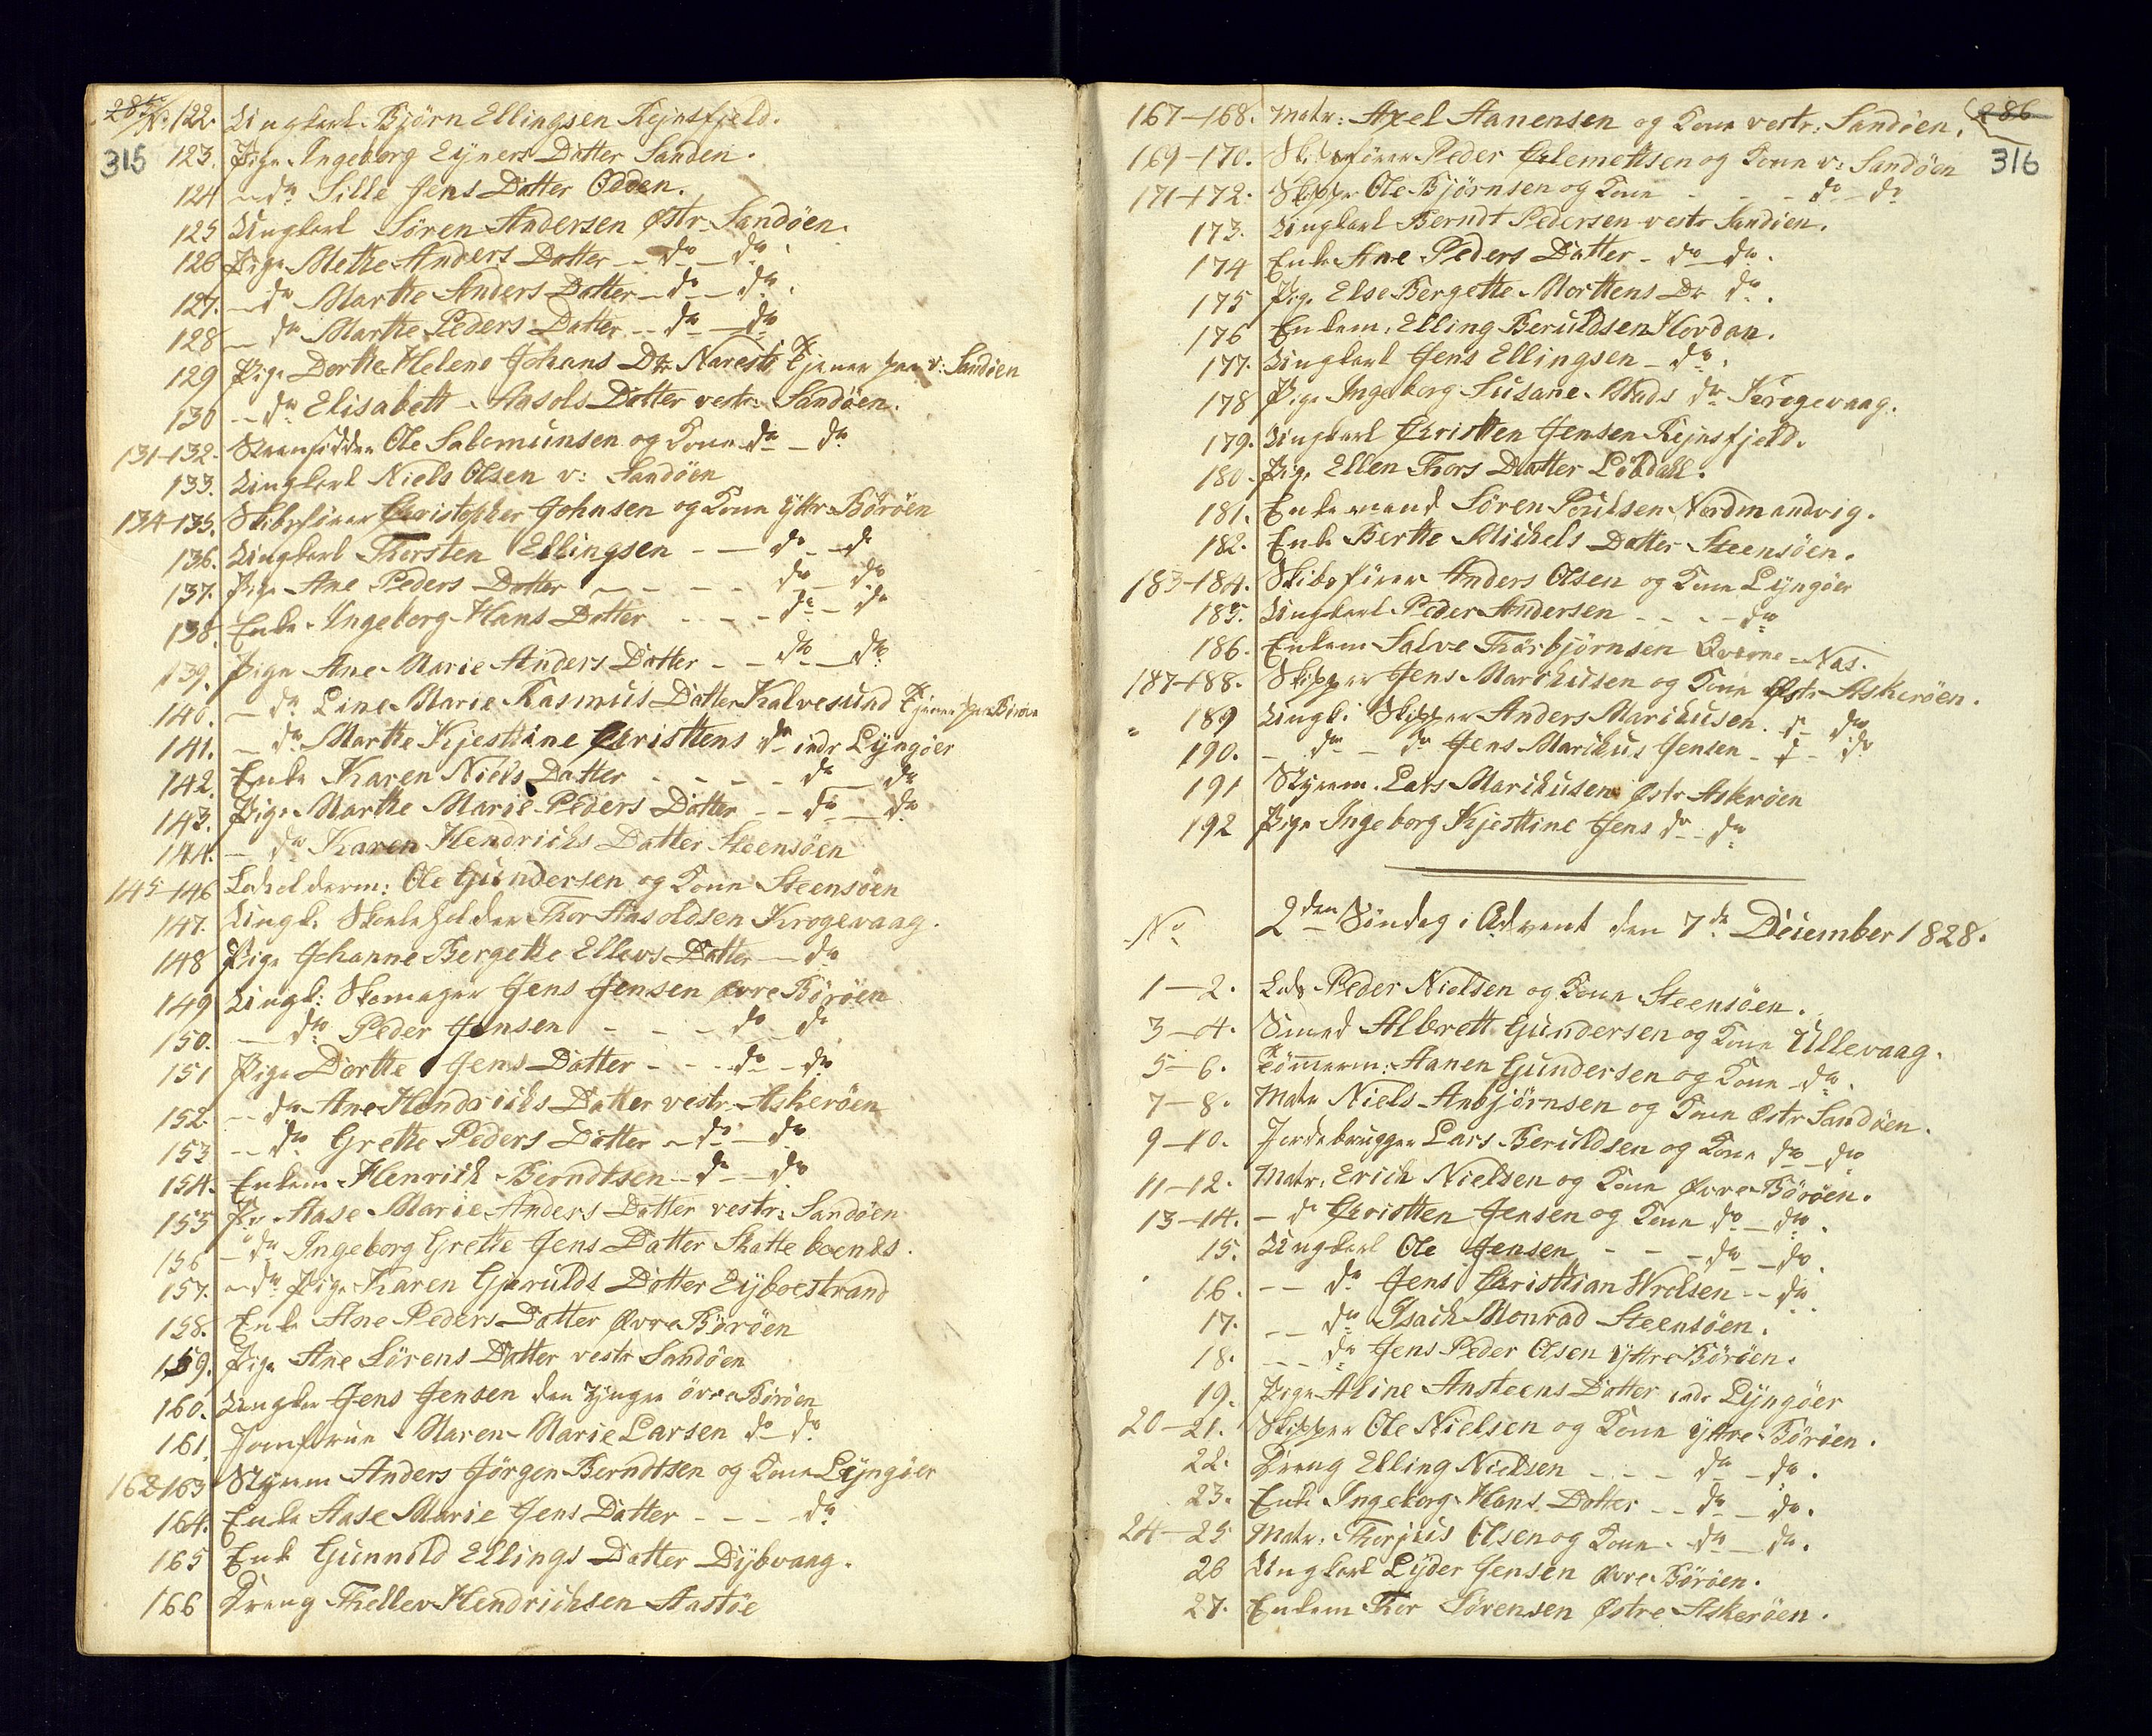 285
315
No 122. Ungkarl Bjørn Ellingsen Rejnsfjeld.
123. Pige Ingeborg Eyners Datter Sanden.
124 — do Sille Jens Datter Odden.
125 Ungkarl Sören Andersen Østr. Sandöen.
126 Pige Methe Anders Datter — do — do.
127. — do Marthe Anders Datter — do — do.
128 — do Marthe Peders Datter — do — do
129 Pige Dorthe Helene Johans Dtr Narestö tjener paa v: Sandöen
130 — do Elisabett Aasols Datter vestr. Sandöen.
131-132. Ole Salomunsen og Kone do — do
133. Ungkarl Niels Olsen v: Sandöen
134-135. Skibsfører Christopher Johnsen og Kone Yttr. Böröen
136. Ungkarl Thorsten Ellingsen — — do — do
137. Pige Ane Peders Datter — — — — do — do
138. Enke Ingeborg Hans Datter - - - - do — do
139. Pige Ane Marie Anders Datter — — do — do
140. — do Line Marie Rasmus Datter Kalvesund tjener paa Böröen
141. — do Marthe Kjestine Christens do indr Lyngöer
142. Enke Karen Niels Datter - - - - do do
143. Pige Marthe Marie Peders Datter — — do — do
144. — do Karen Hendrichs Datter Steensöen
145-146 Ole Gundersen og Kone Steensöen
147. Ungk. Skoleholder Thor Aasoldsen Krogevaag.
148 Pige Johanne Bergethe Ellevs Datter — do
149 Ungk: Skomager Jens Jensen Øvre Böröen
150. — do Peder Jensen - - - do do
151 Pige Dorthe Jens Datter - - - do - do
152. — do Ane Hendrichs Datter vestr. Askeröen
153 — do Grethe Peders Datter — do — do
154. Enkem Henrich Berndtsen — do — do
155 Pe Aase Marie Anders Datter vestr: Sandöen
156 — do Ingeborg Grethe Jens Datter Skatteboends.
157. — do Pige Karen Gjerulds Datter Dyboestrand
158. Enke Ane Peders Datter Øvre Böröen
159. Pige Ane Sörens Datter vestr Sandöen
160. Ungkar Jens Jensen den Yngre övre Böröen
161. Jomfrue Maren Marie Larsen do do
162-163 Styrem Anders Jörgen Berndtsen og Kone Lyngöer
164. Enke Aase Marie Jens Datter - - - - do
165 Enk Gunnild Ellings Datter Dybvaag.
166 Dreng Thellev Hendrichsen Aastöe
286
316
167-168. Matr: Axel Aanensen og Kone vestr: Sandöen.
169-170. Skibsfører Peder Clemettsen og Kone v: Sandöen
171-172. Skipper Ole Bjørnsen og Kone - - - do - do
173. Ungkarl Berndt Pedersen vestr Sandöen.
174 Enke Ane Peders Datter - do - do.
175 Pige Else Bergette Morttens Dr do.
176 Enkem. Elling Beruldsen Hovdan.
177. Ungkarl Jens Ellingsen - do.
178 Pige Ingeborg Susane Mads dr Krogevaag.
179. Ungkarl Christen Jensen Rejnsfjeld.
180. Pige Ellen Thors Datter Löbdahl.
181. Enkemand Sören Poulsen Nordmandvig.
182. Enke Berthe Michels Datter Steensöen.
183-184. Skibsfører Anders Olsen og Kone Lyngöer
185. Ungkarl Peder Andersen - - - - do
186. Enkem Salve Thorbjörnsen Qverne-Nas.
187-188. Skipper Jens Marchusen og Kone Østr Askeröen.
189 Ungk: Skipper Anders Marchusen. do do
190. - do - do Jens Marchus Jensen - do - do
191 Styrem. Lars Marchusen Østr Askeröen
192 Pige Ingeborg Kjestine Jens do - do
No 2den Söndag i Advent den 7de December 1828.
1-2. Lods Peder Nielsen og Kone Steensöen.
3-4. Smed Albrett Gundersen og Kone Ullevaag.
5-6. Tömmerm: Aanen Gundersen og Kone - do.
7-8. Matr Niels Anbjörnsen og Kone Østr Sandöen.
9-10. Jordebrugger Lars Beruldsen og Kone do - do
11-12. Matr. Erich Nielsen og Kone Øvre Böröen.
13-14. — do Christen Jensen og Kone do - do.
15. Ungkarl Ole Jensen - - - do - do.
16. — — do Jens Christian Wrolsen - - do
17. — — do Isach Monrad Steensöen.
18. - - - do Jens Peder Olsen Yttre Böröen.
19. Pige Aline Ansteens Datter indr Lyngöer
20-21. Skipper Ole Nielsen og Kone Yttre Böröen.
22. Dreng Elling Nielsen - - - do - do.
23. Enke Ingeborg Hans Datter - - do - do.
24-25 Matr: Thorjus Olsen og Kone - do - do.
26 Ungkarl Lyder Jensen Øvre Böröen.
27. Enkem Thor Sörensen Østre Askeröen.